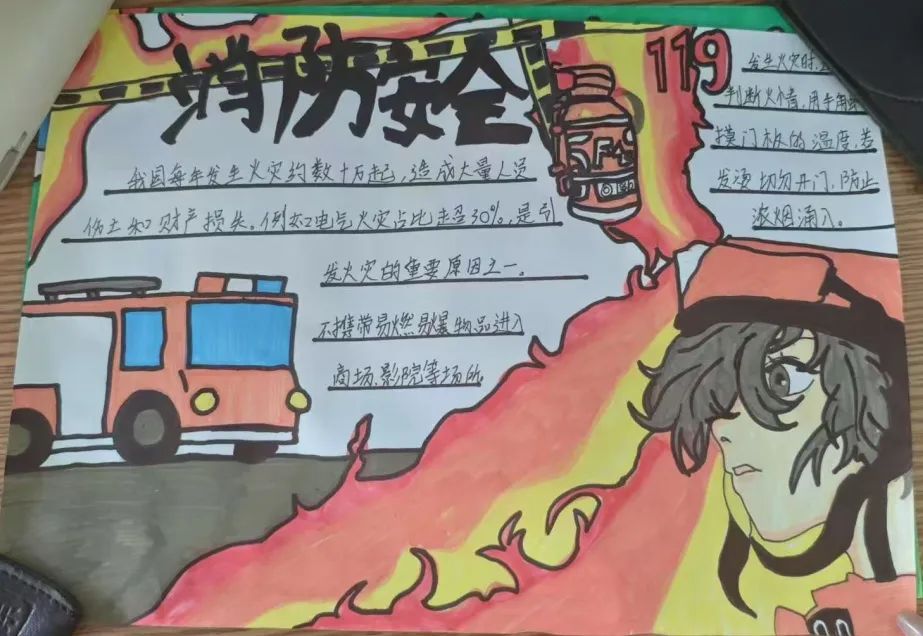 消防安全
119
我国每年发生火灾约数十万起，造成大量人员
伤亡和财产损失。例如电气火灾占比超30%，是引
发火灾的重要原因之一。
不携带易燃易爆物品进入
商场、影院等场所
发生火灾时，
判断火情，用手
摸门板的温度，若
发烫切勿开门，防止
浓烟涌入。